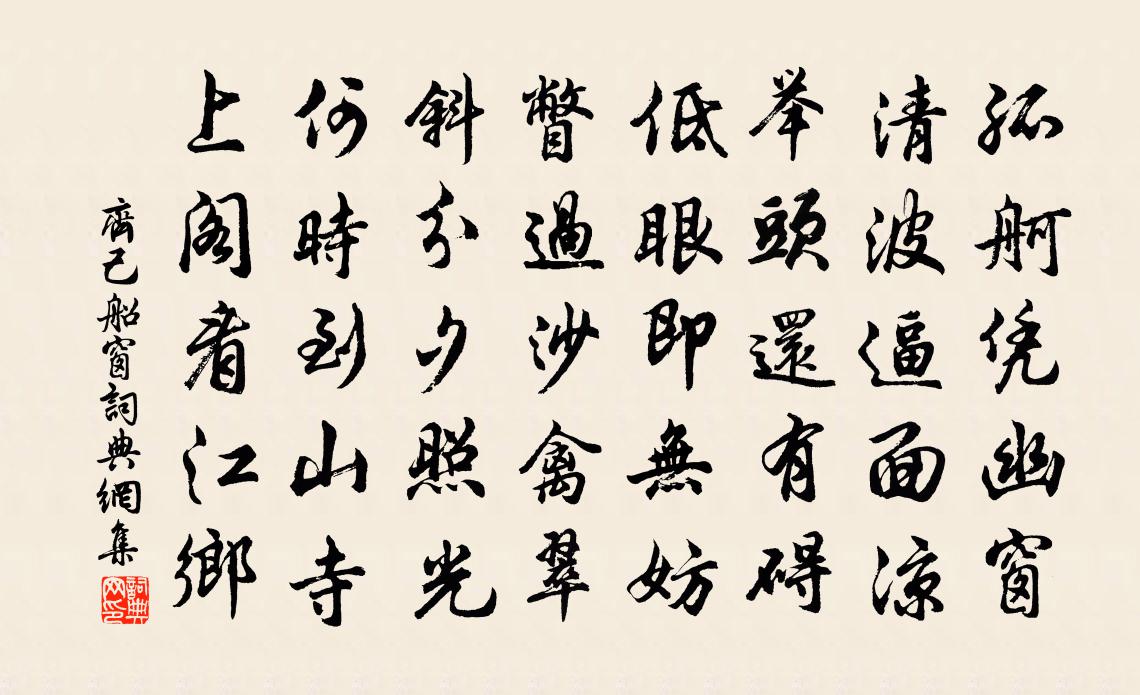 孤舸凭幽窗
清波逼面涼
举頭還有碍
低眼即無妨
瞥過沙禽翠
斜分夕照光
何時到山寺
上阁看江鄉
齊己船窗詞典網集
詞典网印